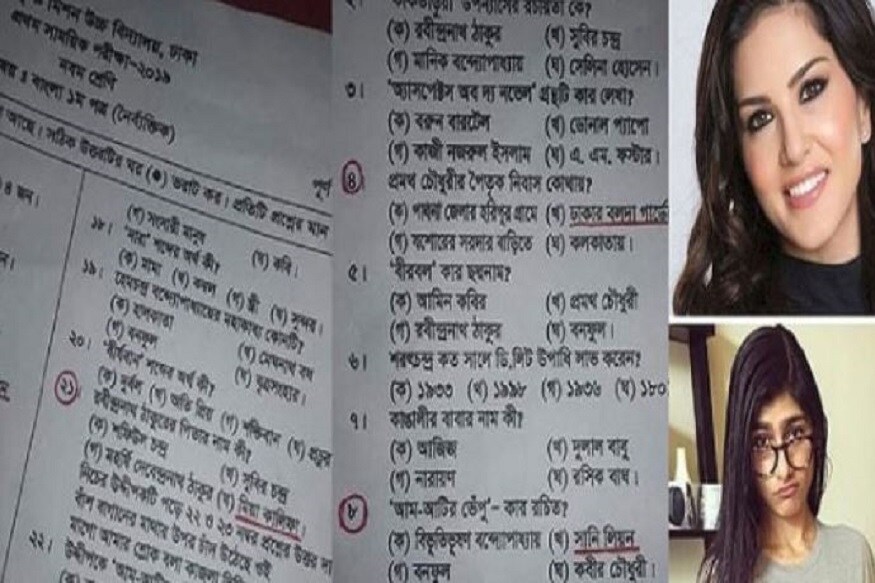 মিশন উচ্চ বিদ্যালয়, ঢাকা
প্রথম সাময়িক পরীক্ষা-২০১৯
নবম শ্রেণি
বাংলা ১ম পত্র (নৈর্ব্যক্তিক)
আছে। সঠিক উত্তরটির ঘর (●) ভরাট কর। প্রতিটি প্রশ্নের মান
পূর্ণ
৪ জন।
(গ) সংসারী মানুষ (ঘ) কবি।
১৮। শব্দের অর্থ কী?
(ক) মামা (খ) কমল (গ) স্ত্রী (ঘ) সুন্দর।
১৯। হেমচন্দ্র বন্দ্যোপাধ্যায়ের মহাকাব্য কোনটি?
(ক) (খ) মেঘনাদ বধ
(গ) বনফুল (ঘ) বৃত্রসংহার।
২০। 'বীর্যবান' শব্দের অর্থ কী?
(ক) দুর্বল (খ) অতি প্রিয় (গ) শক্তিবান (ঘ)
২১। রবীন্দ্রনাথ ঠাকুরের পিতার নাম কী?
(ক) শফিউল চন্দ্র (খ) সুবির চন্দ্র
(গ) মহর্ষি দেবেন্দ্রনাথ ঠাকুর (ঘ) মিয়া কালিফা।
নিচের উদ্দীপকটি পড়ে ২২ ও ২৩ নম্বর প্রশ্নের উত্তর দা
বাঁশ বাগানের মাথার উপর চাঁদ উঠেছে ওই
মাগো আমার শ্লোক বলা কাজলা দিদি
২২। উদ্দীপকে 'আম-আটির
উপন্যাসের রচয়িতা কে?
(ক) রবীন্দ্রনাথ ঠাকুর (খ) সুবির চন্দ্র
(গ) মানিক বন্দ্যোপাধ্যায় (ঘ) সেলিনা হোসেন।
৩। 'অ্যাসপেক্টস অব দ্য নভেল' গ্রন্থটি কার লেখা?
(ক) বরুন বারটেল (খ) ডোনাল প্যাপো
(গ) কাজী নজরুল ইসলাম (ঘ) এ. এম. ফস্টার।
৪। প্রমথ চৌধুরীর পৈতৃক নিবাস কোথায়?
(ক) পাবনা জেলার হরিপুর গ্রামে (খ) ঢাকার বলদা গার্ডে
(গ) যশোরের সরদার বাড়িতে (ঘ) কলকাতায়।
৫। 'বীরবল' কার ছদ্মনাম?
(ক) আমিন কবির (খ) প্রমথ চৌধুরী
(গ) রবীন্দ্রনাথ ঠাকুর (ঘ) বনফুল।
৬। শরৎচন্দ্র কত সালে ডি.লিট উপাধি লাভ করেন?
(ক) ১৯৩৩ (খ) ১৯৯৮ (গ) ১৯৩৬ (ঘ) ১৮০
৭। কাঙালীর বাবার নাম কী?
(ক) আজিজ (খ) দুলাল বাবু
(গ) নারায়ণ (ঘ) রসিক বাঘ।
৮। 'আম-আটির ভেঁপু'- কার রচিত?
(ক) বিভূতিভূষণ বন্দ্যোপাধ্যায় (খ) সানি লিয়ন
(গ) বনফুল (ঘ) কবীর চৌধুরী।